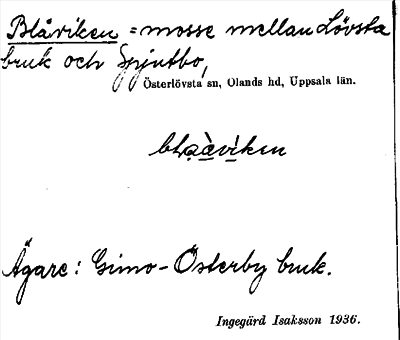 Blåviken = mosse mellan Lövsta
bruk och Spjutbo,
Österlövsta sn, Olands hd, Uppsala län.
Ägare: Gimo-Österby bruk.
Ingegärd Isaksson 1936.